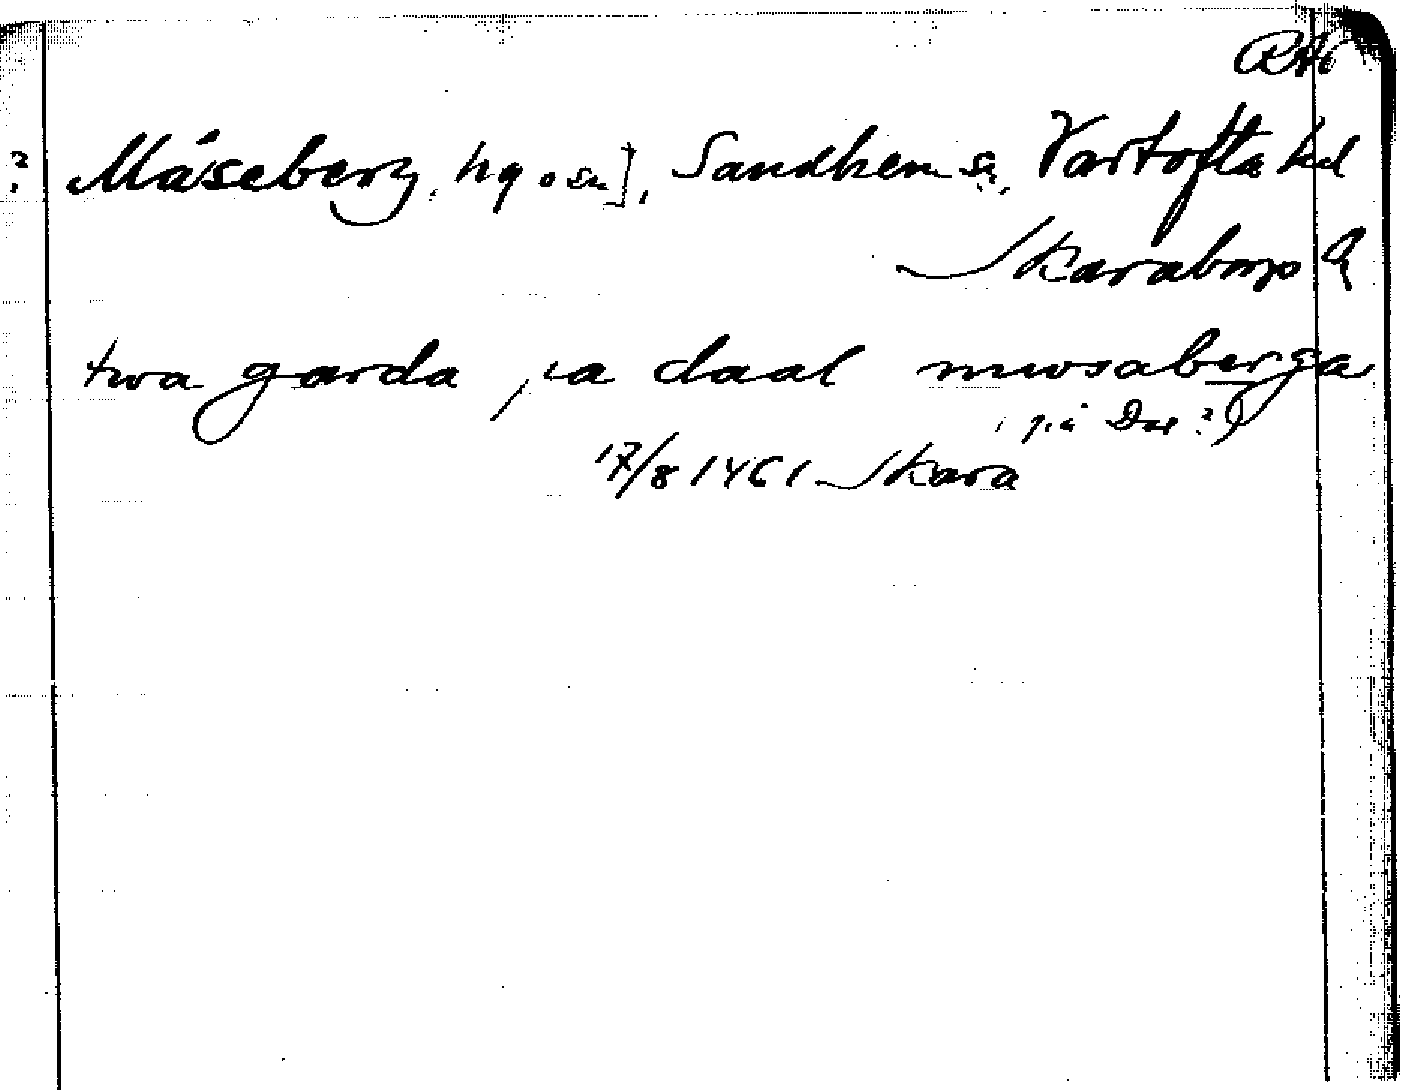 RAp
? Måseberg, hg o sn], Sandhem sn, Vartofta hd
Skaraborgs l
twa garda pa daal mwsaberga
på Dal ?
17/8 1461 Skara